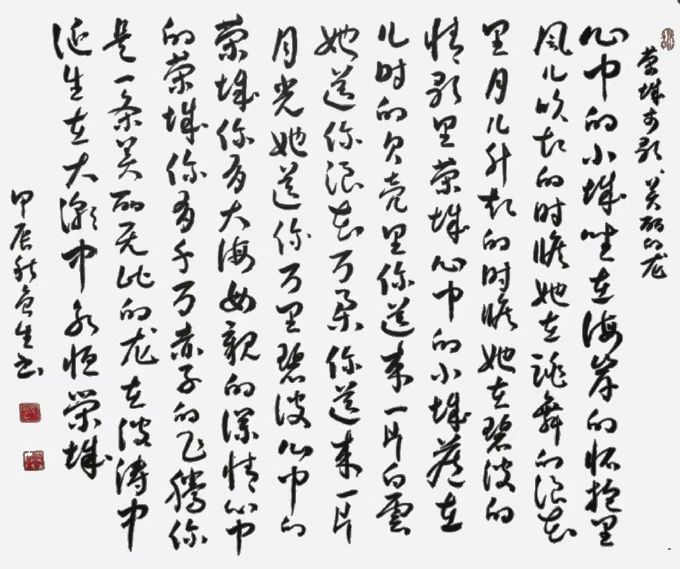 荣城市歌 美丽的龙
心中的小城坐在海岸的怀抱里
风儿吹起的时候她在跳舞的浪花
里月儿升起的时候她在碧波的
情歌里荣城心中的小城在
儿时的贝壳里你送来一片白雲
她送你浪花万朵你送来一片
月光她送你万里碧波心中的
荣城你有大海母親的深情心中
的荣城你有千万赤子的飞腾你
是一条美丽无比的龙在波涛中
诞生在大潮中永恒荣城
甲辰秋生书